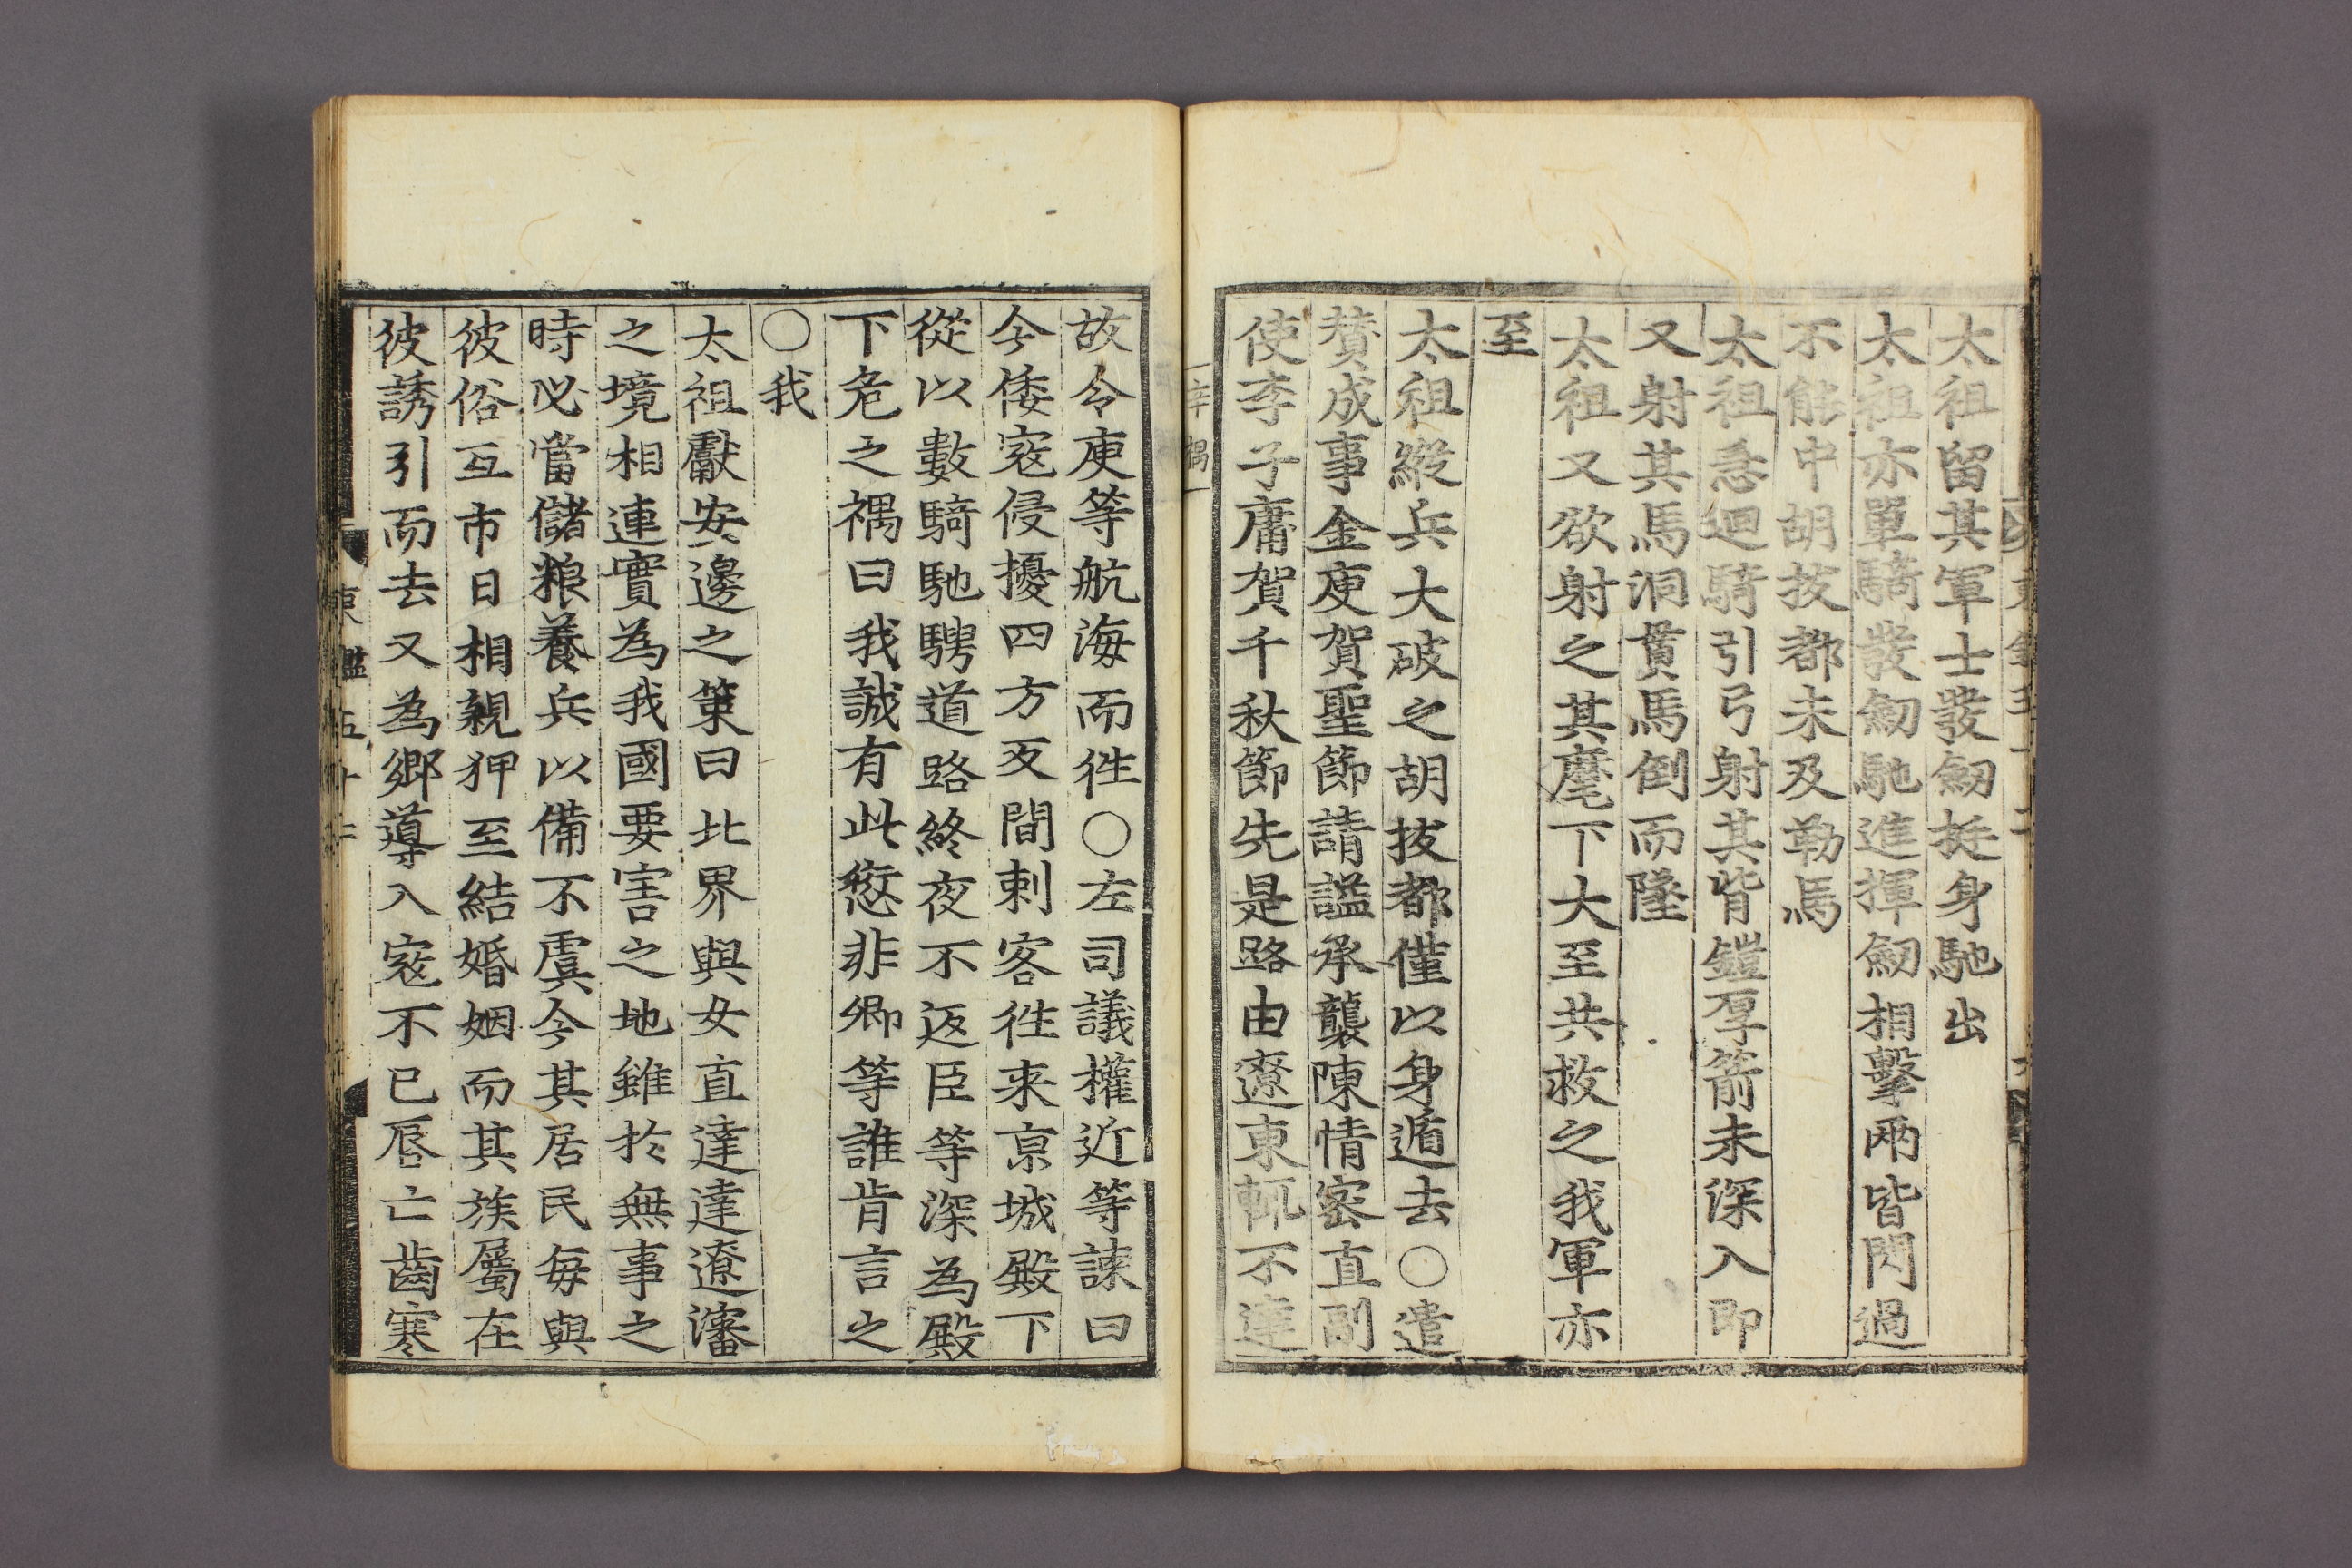 太祖留其軍士發劒挺身馳出
太祖亦單騎發劒馳進揮劒相擊兩皆閃過
不能中胡拔都未及勒馬
太祖急迴騎引弓射其背鎧厚箭未深入即
又射其馬洞貫馬倒而墜
太祖又欲射之其麾下大至共救之我軍亦
至
太祖縱兵大破之胡拔都僅以身遁去○遣
贊成事金庾賀聖節請謚承襲陳情密直副
使李子庸賀千秋節先是路由遼東輒不達
辛禑一
故令庾等航海而徃○左司議權近等諫曰
今倭寇侵擾四方又間刺客徃来京城殿下
從以數騎馳騁道路終夜不返臣等深為殿
下危之禑曰我誠有此愆非卿等誰肯言之
○我
太祖獻安邊之策曰北界與女直達達遼瀋
之境相連實為我國要害之地雖扵無事之
時必當儲粮養兵以備不虞今其居民每與
彼俗互市日相親狎至結婚姻而其族屬在
彼誘引而去又為鄉導入寇不已唇亡齒寒
東鑑五十二